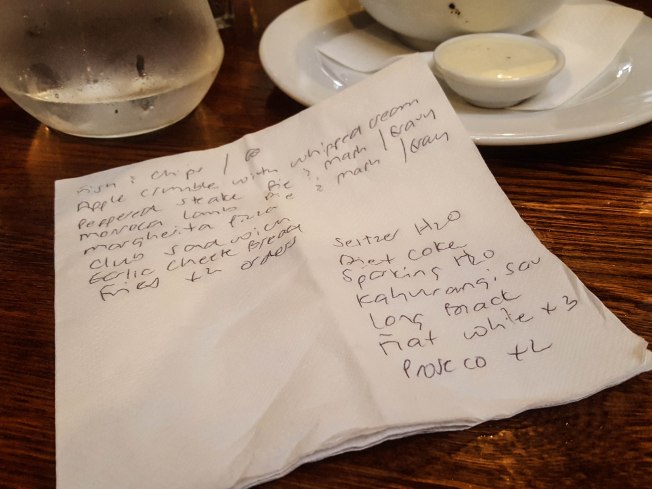 Fish & Chips /
Apple crumble with whipped cream
Peppered steak Pie & mash / Gravy
Moroca Lamb Pie & mash / Gravy
margherita Pizza
Club Sandwich
Garlic Cheese Bread
Fries x2 orders
Seltzer H2O
Diet Coke
Sparking H2O
Kahurangi, Sau
Long Black
Flat white x 3
Proseco x2